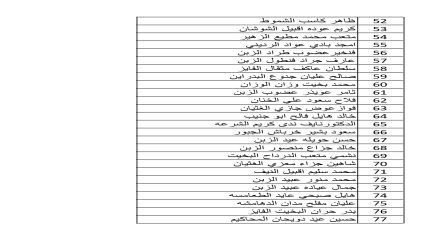 52 ظاهر كاسب الشموط
53 كريم عوده اقبيل الشوشان
54 متعب محمد مطيع الزهير
55 امجد بادي عواد الرديني
56 فنخير عضوب طراد الزبن
57 عارف جراد فنطول الزبن
58 سلطان عاكف مثقال الفايز
59 صالح عليان جدوع البدراين
60 محمد بخيت وزان الوزان
61 ثامر عويدر عضوب الزبن
62 فلاح سعود علي الخنان
63 فواز عوض جازي الغثيان
64 خالد هايل فالح ابو جنيب
65 الدكتور نايف ندى كريم الشرعه
66 سعود بشير خرباش الجبور
67 حسن حويله عبد الزبن
68 خالد جزاع منصور الزبن
69 نشمي متعب الدرداح البخيت
70 شاهين جزاء معزي الغثيان
71 محمد سليم اقبيل النيف
72 محمد منور عبيد الزبن
73 جمال عياده عبيد الزبن
74 هايل صبحي عايد الطعامسه
75 عليان مفلح مدان الدهامشه
76 بدر حران البخيت الفايز
77 حسين عيد دويحان المحاكيم